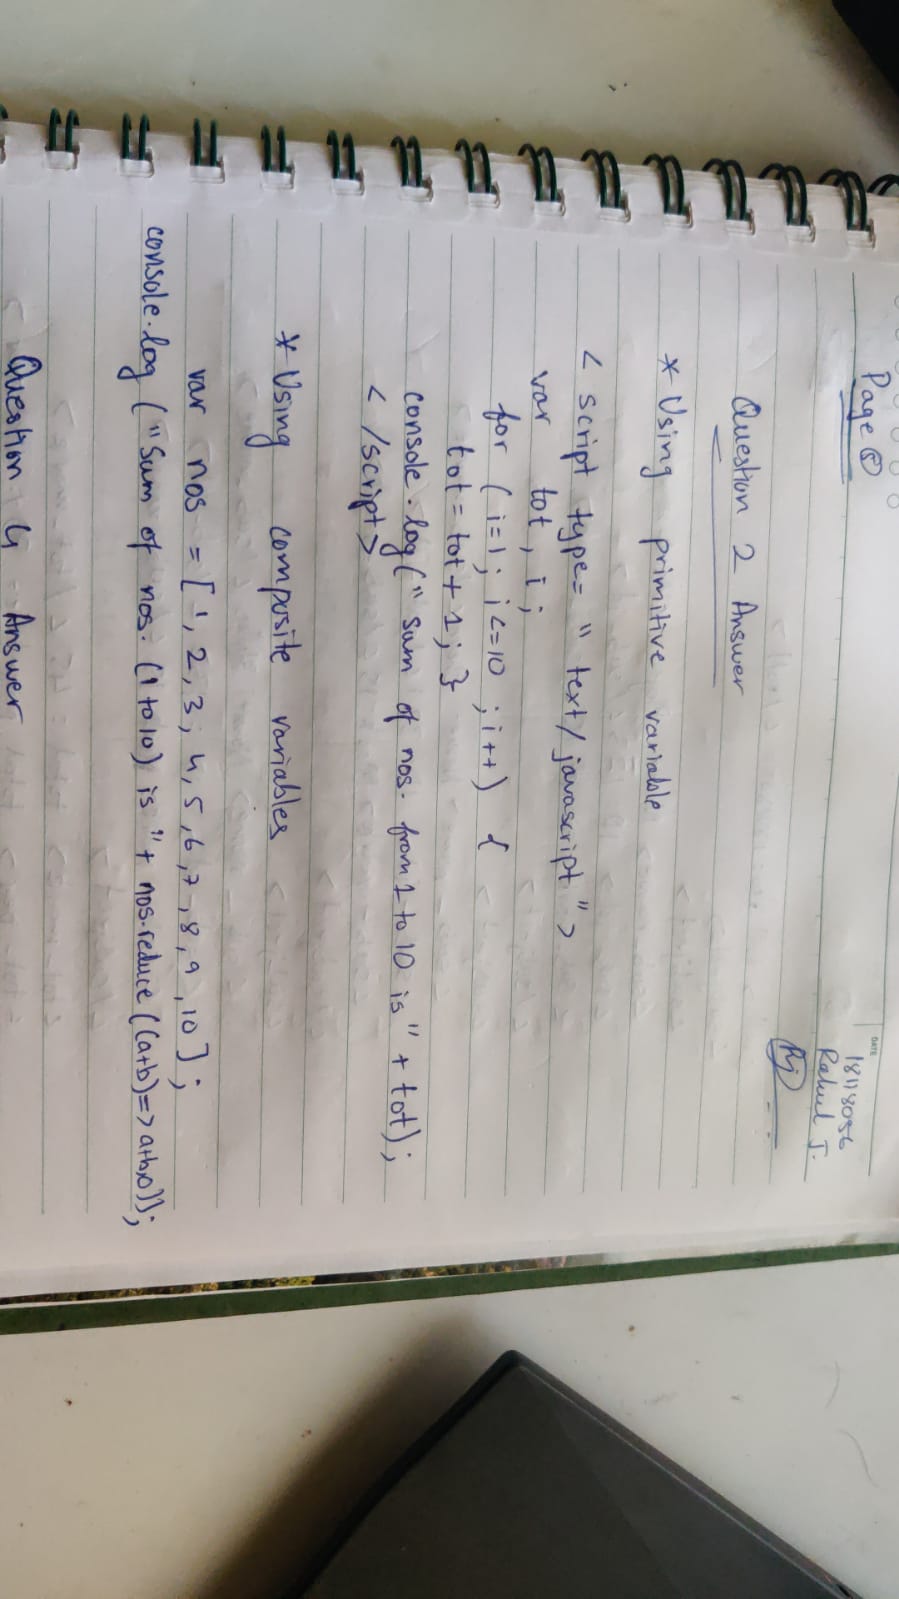 Page 8
DATE
18118056
Rahul J.
Rj
Question 2 Answer
* Using primitive variable
< script type= " text/javascript ">
var tot, i;
for (i=1; i<=10 ; i++) {
tot = tot + 1; }
console.log(" Sum of nos. from 1 to 10 is" + tot);
< /script>
* Using composite variables
var nos = [1, 2, 3, 4, 5, 6, 7, 8, 9, 10];
console.log ("Sum of nos. (1 to 10) is "+ nos.reduce ((a+b)=> a+b,0));
Question 4 Answer